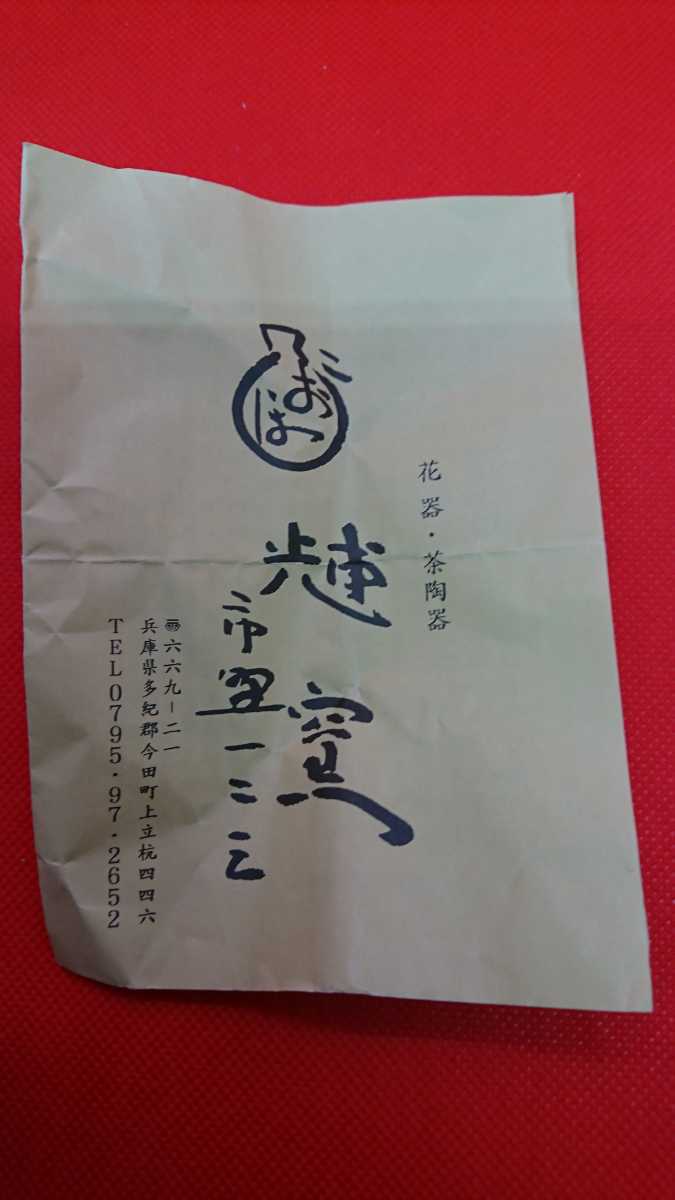 花器・茶陶器
輝窯
市野一二三
〒六六九－二一
兵庫県多紀郡今田町上立杭四四六
TEL0795・97・2652